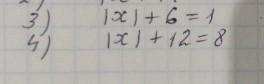 3) |x| + 6 = 1
4) |x| + 12 = 8